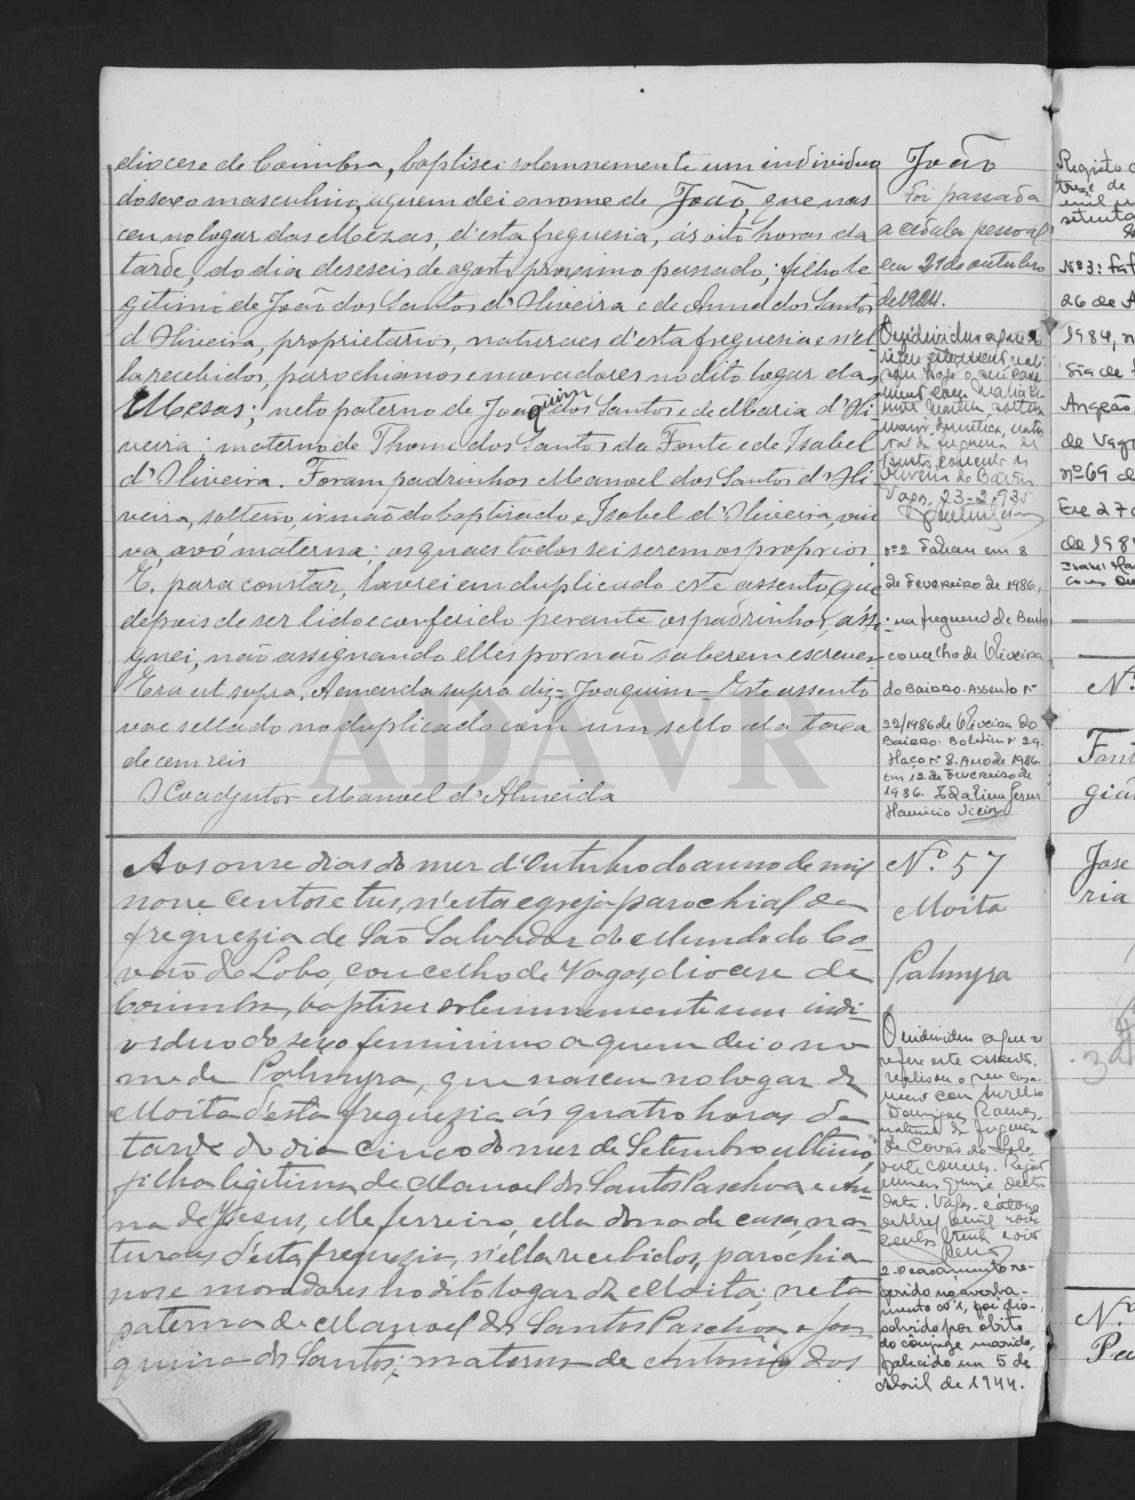 diocese de Coimbra, baptisei solemnemente um individuo
do sexo masculino, a quem dei o nome de João, que nas
ceu no logar das Mezas, d'esta freguesia, ás oito horas da
tarde, do dia deseseis de agosto proximo passado; filho le
gitimo de João dos Santos d'Oliveira e de Anna dos Santos
d'Oliveira, proprietarios, naturaes d'esta freguesia e n'el
la recebidos, parochianos e moradores no dito logar das
Mesas; neto paterno de Joaquim dos Santos e de Maria d'Oli
veira: materno de Thome dos Santos da Fonte e de Isabel
d'Oliveira. Foram padrinhos Manoel dos Santos d'Oli
veira, solteiro, irmão do baptisado e Isabel d'Oliveira, viu
va, avó materna; os quaes todos sei serem os proprios
E, para constar, lavrei em duplicado este assento, que
depois de ser lido e conferido perante os padrinhos, assi
gnei, não assignando elles por não saberem escrever
Era ut supra. A emenda supra diz = Joaquim = Este assento
vae sellado no duplicado com um sello da taxa
de cem reis
O Coadjutor Manoel d'Almeida
João
Foi passada
a cedula pessoal
em 21 de outubro
de 1924.
O individuo a que se
refere este assento reali
sou hoje o seu casa
mento com Maria
Martins solteira
maior, domestica, natu
ral da freguesia de
Bustos, concelho de
Oliveira do Bairro
Vagos, 23-2-935
Nº 2 Faleceu em 8
de Fevereiro de 1986,
na freguesia de Bustos
concelho de Oliveira
do Bairro. Assento nº
22/1986 de Oliveira do
Bairro. Boletim nº 29.
Maço nº 8. Ano de 1986.
Em 12 de Fevereiro de
1986.
Aos onze dias do mez d'Outubro do anno de mil
nove centos e tres, n'esta egreja parochial da
freguezia de São Salvador do Mundo do Co-
vão do Lobo, concelho de Vagos, diocese de
Coimbra, baptisei solemnemente um indi-
viduo do sexo feminino a quem dei o no
me de Palmyra, que nasceu no logar da
Moita d'esta freguezia ás quatro horas da
tarde do dia cinco do mez de Setembro ultimo,
filha legitima de Manoel dos Santos Paschoa e An-
na de Jesus, elle ferreiro, ella dona de casa, na-
turaes d'esta freguezia, n'ella recebidos, parochia
nos e moradores no dito logar da Moita; neta
paterna de Manoel dos Santos Paschoa e Joa-
quina dos Santos; materna de Antonio dos
N.º 57
Moita
Palmyra
O individuo a que se
refere este assento,
realisou o seu casa-
mento com Aurelio
Domingues Ramos,
natural da freguesia
de Covão do Lobo,
deste concelho. Registo
numero quinze desta
data. Vagos, catorze
de Abril de mil nove
centos trinta e oito
2-O casamento re-
ferido no averba-
mento nº 1, foi dis-
solvido por obito
do conjuge marido,
falecido em 5 de
Abril de 1944.
Nº 3:
26 de
1984, n
sia de
de Vag
nº 69 d
Em 27
de 198
Nº
José
ria
N.º
ADAVR